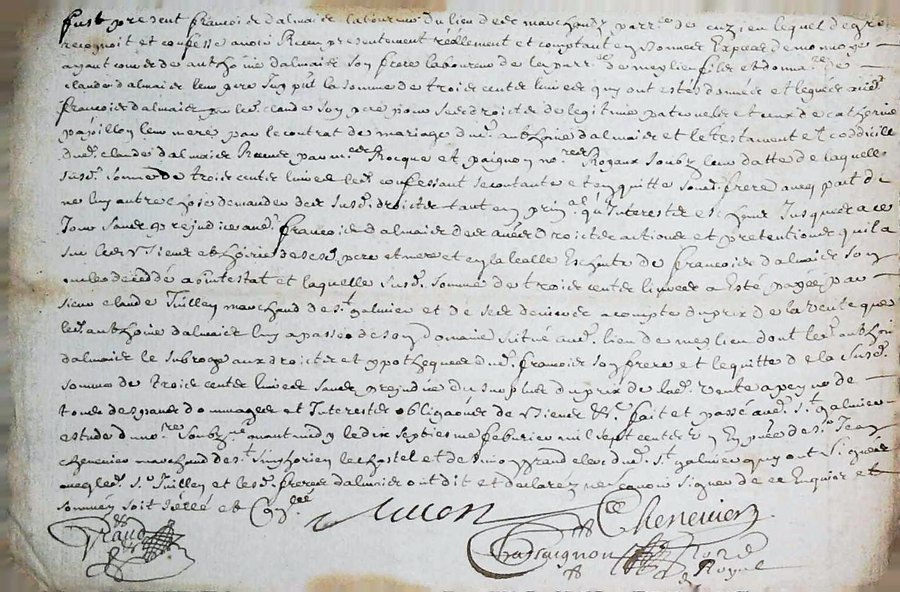 fust present francois dalmaies laboureur du lieu de marchand parr.se de cuzieu lequel de gre
recognoit et confesse avoir Receu presentement reellement et comptant en bonnes Especes de monnoye
ayant cours de anthoine dalmaies son frere laboureur de la parr.se de meylieu fils et donnat.re de
claude dalmaies leur pere la somme de trois centz livres quy ont estés donnés et légués aud.t
francois dalmaies par led. claude son pere pour ses droictz de legitime paternelz et ceux de catherine
papillon leur mere par le contrat de mariage dud. anthoine dalmaies et le testament et coddicille
dud. claude dalmaies Receus par m.es Rocque et paignon no.res Royaux soubz leur datte de laquelle
susd. somme de trois centz livres led. confessant se contante et en quitte sond. frere avec pact de
ne luy autre chose demander des susd. droictz tant en prin.al qu'interestz escheus jusques a ce
jour sans prejudice aud. francois dalmaies des autres droictz actions et pretentions qu'il a
sur les biens et hoirie de sesd. pere et mere et en la de francois dalmaies son
oncle decedé abintestat et laquelle susd. somme de trois centz livres a esté payée par
sieur claude Juillen marchand de s.t galmier et de ses deniers a compte du prix de la vente que
led. anthoine dalmaies luy a passé de son domaine situé aud. lieu de meylieu dont led. anthoine
dalmaies le subroge aux droictz et ypotheques dud. francois son frere et le quitte de la susd.
somme de trois centz livres sans prejudice du surplus du prix de lad. vente a peyne de
tous despans dommages et Interestz obliga.ons de biens &c fait et passé aud. s.t galmier
estude du no.re soubz.né avant midy le dix septiesme febvrier mil sept centz en p.nce de s.r Jean
chenevier marchand de s.t Simphorien le chastel et de grand clerc dud. s.t galmier quy ont signé
avec led. s.r Juillen et lesd. freres dalmaies ont dit et declaré ne scavoir signer de ce Enquis et
sommés soit scellé et Con.llé
Juillen
Chenevier
Grand
Chassaignon Nore
Royal